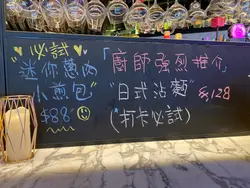 必試
迷你蔥肉
小煎包
$88
「廚師強烈推介」
"日式沾麵" $128
(打卡必試)